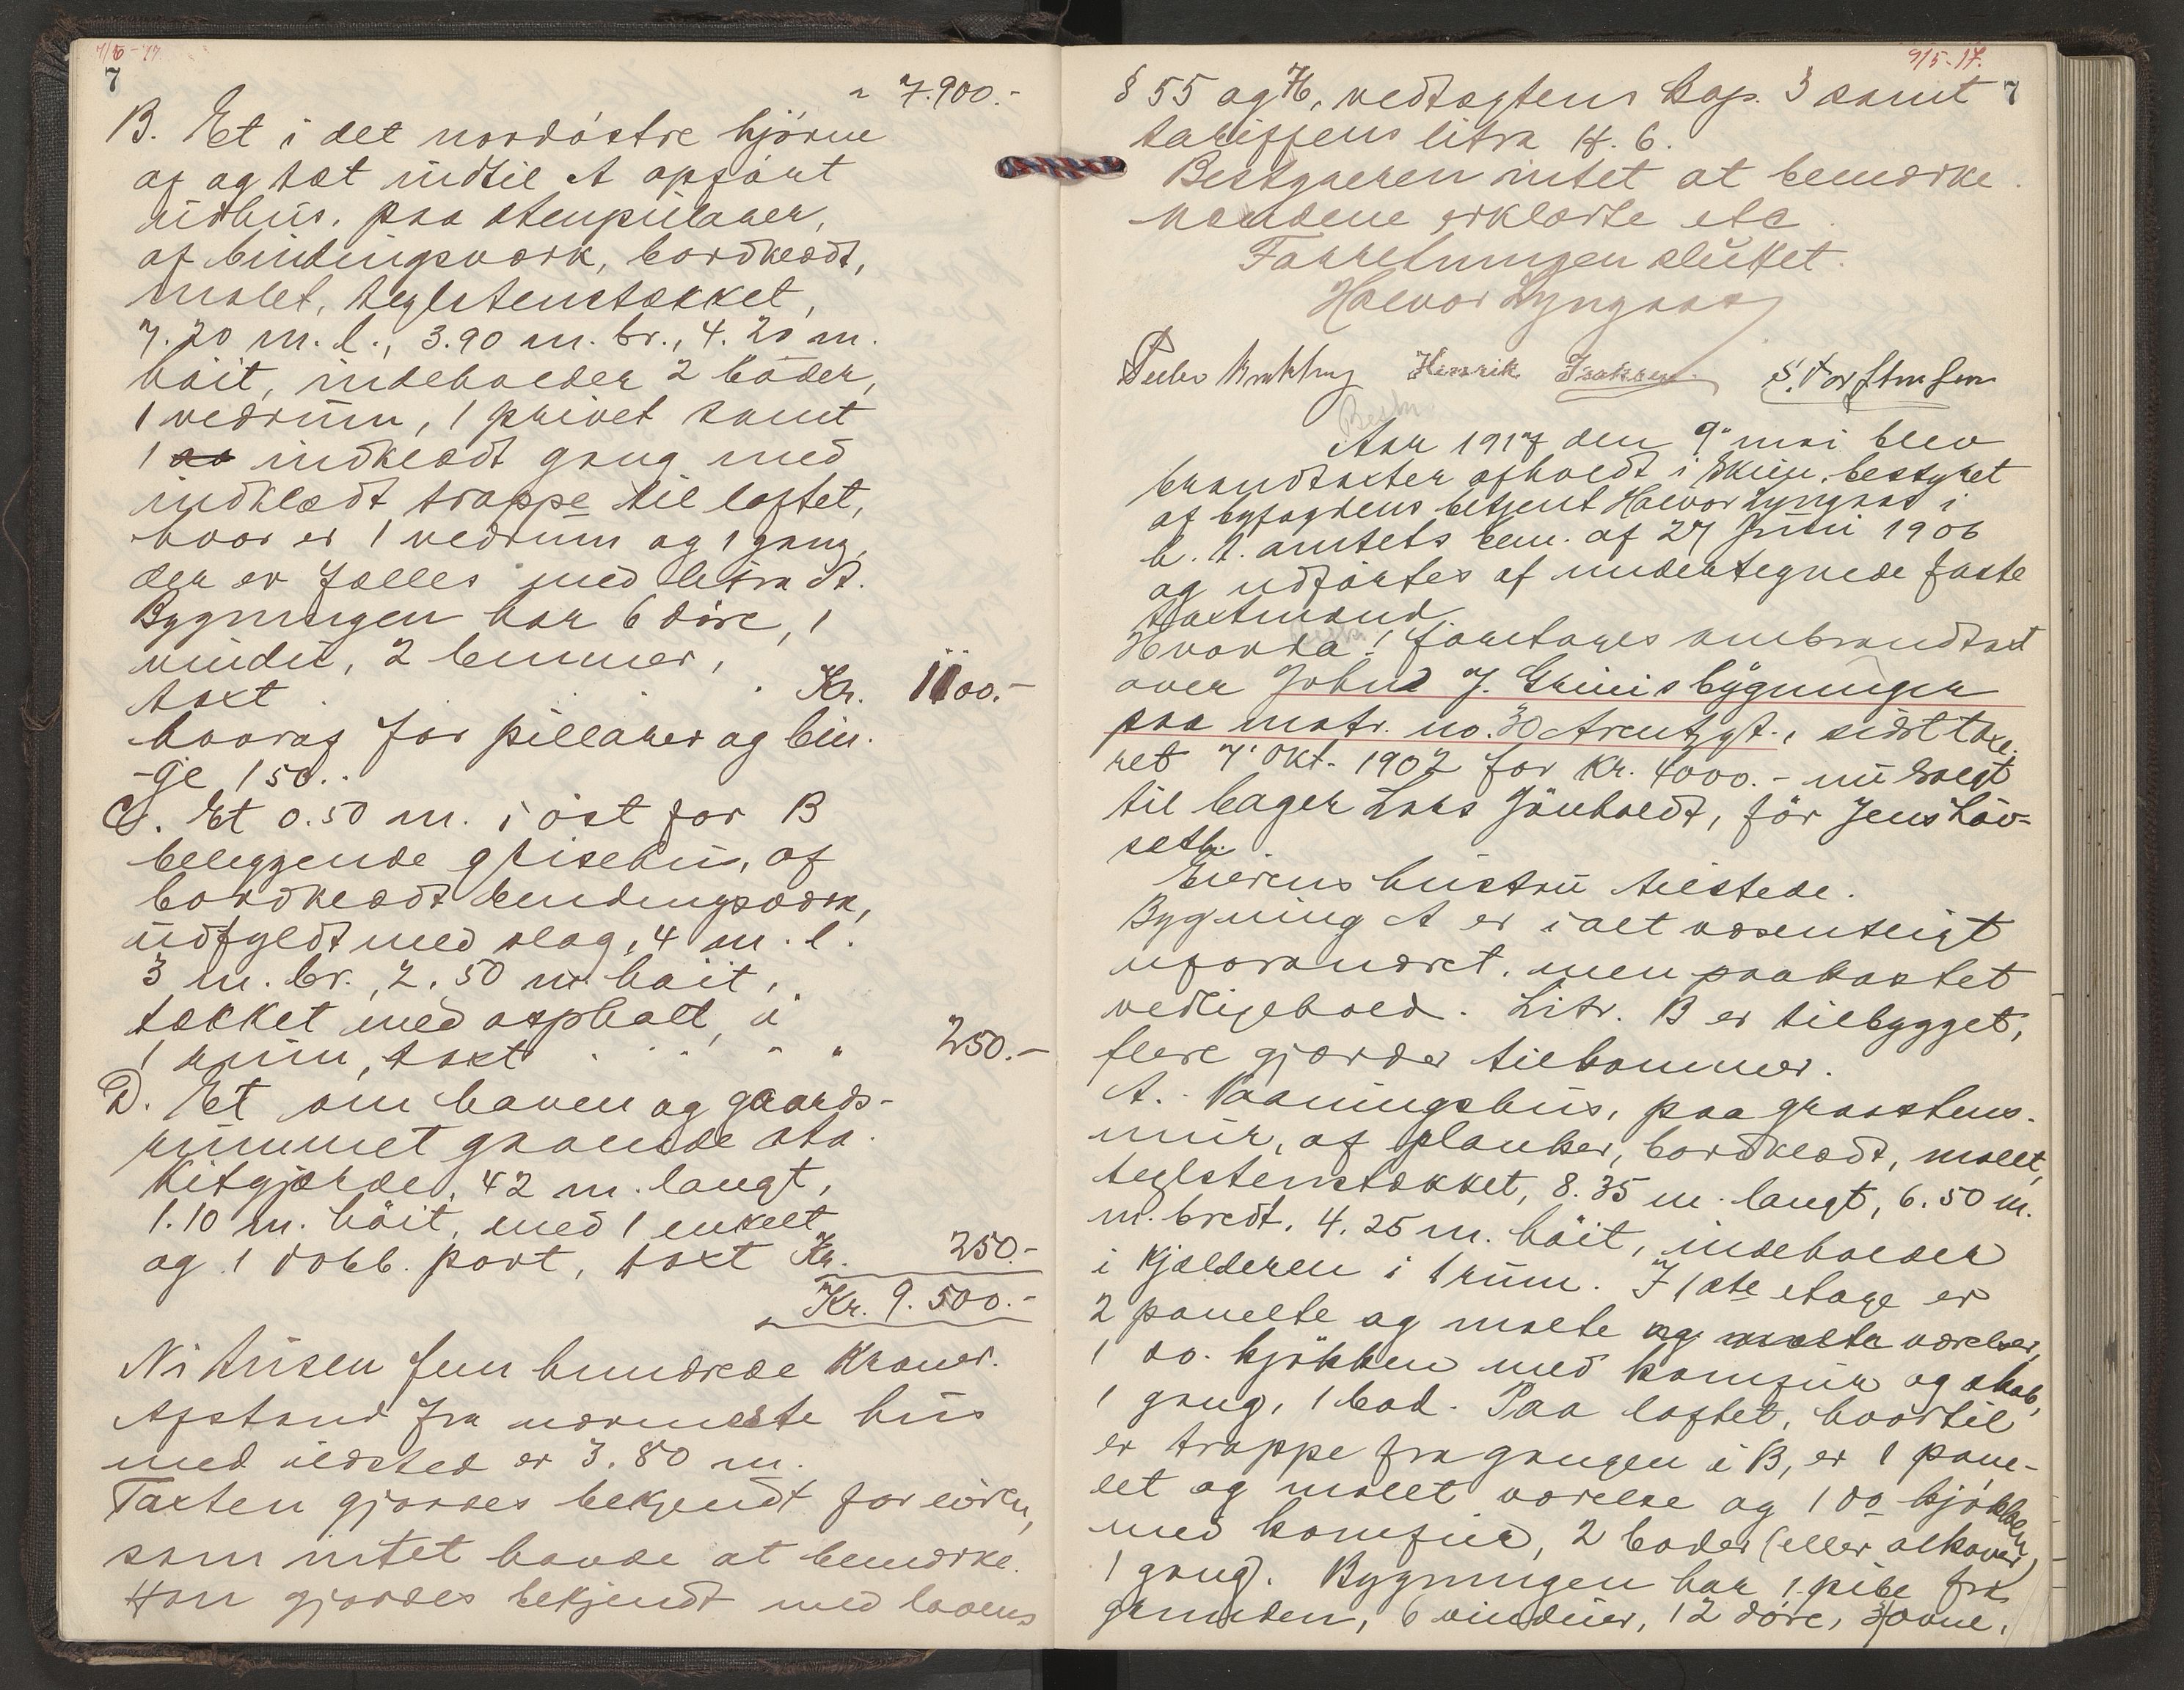 7/5-17
7
" 7.900.-
B. Et i det nordöstre hjörne
af og tæt indtil A opfört
udhus, paa stenpilarer,
af bindingsværk, bordklædt,
malet, teglstenstækket,
7.20 m. l., 3.90 m. br., 4.20 m.
höit, indeholder 2 boder,
1 vedrum, 1 privet samt
1 do indklædt gang med
indklædt trappe til loftet,
hvor er 1 vedrum og 1 gang,
der er fælles med litra A.
Bygningen har 6 döre, 1
vindu, 2 binger,
taxt . . Kr. 1100.-
hvoraf for pillarer og bin-
-ge 150..
C. Et 0.50 m. i öst for B
beliggende grisehus, af
bordklædt bindingsværk,
udfyldt med slag, 4 m. l.
3 m. br., 2.50 m höit,
tækket med asphalt, i
1 rum, taxt . . . " " 250.-
D. Et om haven og gaards-
rummet gaaende sta-
kitgjærde, 42 m. langt,
1.10 m. höit, med 1 enkelt
og 1 dobb. port, taxt Kr. 250.-
Kr. 9.500.-
Ni tusen fem hundrede Kroner.
Afstand fra nærmeste hus
med ildsted er 3.80 m.
Taxten gjordes bekjendt for eieren,
som intet havde at bemærke.
Han gjordes bekjendt med lovens
9/5-17.
7
§ 55 og 76, vedtægtens Kap. 3 samt
tariffens litra H. 6.
Bestyreren intet at bemærke.
Mændene erklærte etc.
Forretningen sluttet.
Halvor Lyngaas
Peder Henrik Isaksen S. Torstensen
Aar 1917 den 9. mai blev
brandtaxter afholdt i Skien, bestyret
af byfogdens betjent Halvor Lyngaas i
h. t. amtets bem. af 27 Juni 1906
og udförtes af undertegnede faste
taxtmænd.
Hvorda: foretages ombrandtaxt
over John J. Grinis bygninger
paa matr. no. 30 Arentzgt., sidst taxe-
ret 7. Okt. 1902 for Kr. 4000.- nu solgt
til bager Lars Jönholdt, för Jens Löv-
seth.
Eierens hustru tilstede.
Bygning A er i alt væsentligt
uforandret, men paakostet
vedligehold. Litr. B er tilbygget,
flere gjærder tilkommer.
A. Vaaningshus, paa graastens-
mur, af planker, bordklædt, malet,
teglstenstækket, 8.35 m. langt, 6.50 m.
m. bredt, 4.25 m. höit, indeholder
i kjælderen i 1 rum. I 1ste etage er
2 panelte og malte og malte værelser,
1 do. kjökken med komfur og skab,
1 gang, 1 bod. Paa loftet, hvortil
er trappe fra gangen i B, er 1 pane-
let og malet værelse og 1 do kjökken
med komfur, 2 boder (eller alkover)
1 gang. Bygningen har 1 pibe fra
grunden, 6 vinduer, 12 döre, 3 ovne,